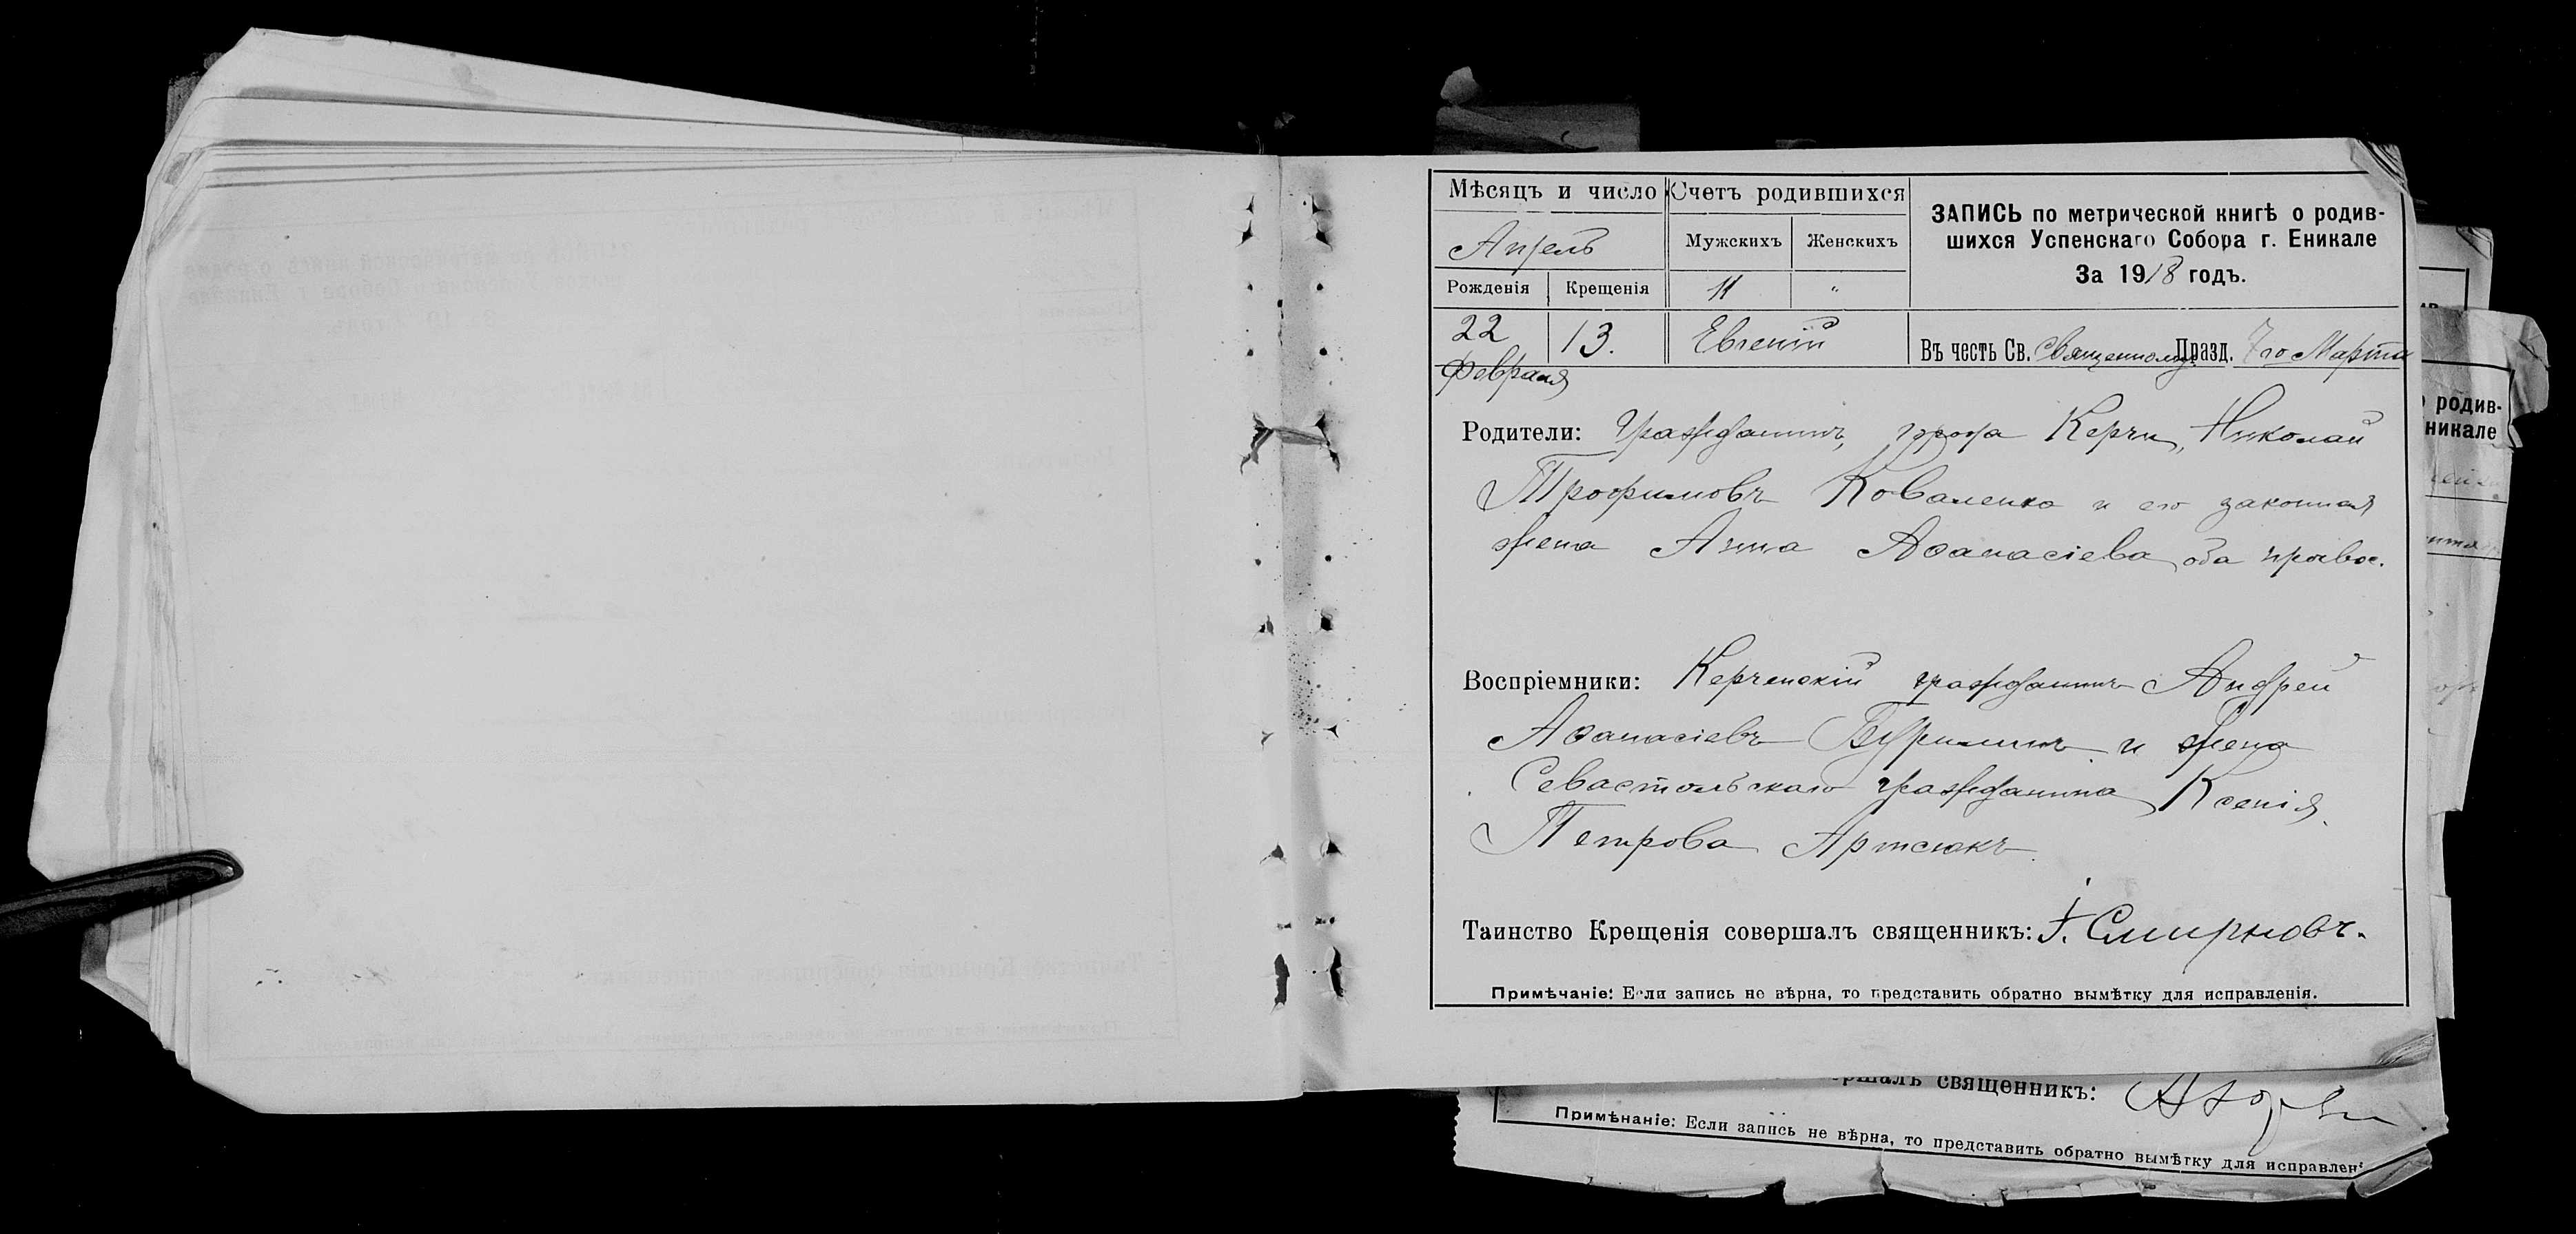 Мѣсяцъ и число
Счетъ родившихся
ЗАПИСЬ по метрической книгѣ о родив-
шихся Успенскаго Собора г. Еникале
За 1918 годъ.
Апрель
Мужскихъ
Женскихъ
Рожденія
Крещенія
11
"
22
февраля
13.
Евгеній
Въ честь Св. Священномуч. Празд. 7го Марта
Родители: Гражданинъ города Керчи, Николай
Трофимовъ Коваленко и его законная
жена Анна Аѳанасіева, оба правос.
Воспріемники: Керченскій гражданинъ Андрей
Аѳанасіевъ и жена
Севастольскаго гражданина Ксенія
Петрова
Таинство Крещенія совершалъ священникъ: І. Смирновъ.
Примѣчаніе: Если запись не вѣрна, то представить обратно вымѣтку для исправленія.
родив-
никале
священникъ:
Примѣчаніе: Если запись не вѣрна, то представить обратно вымѣтку для исправлені